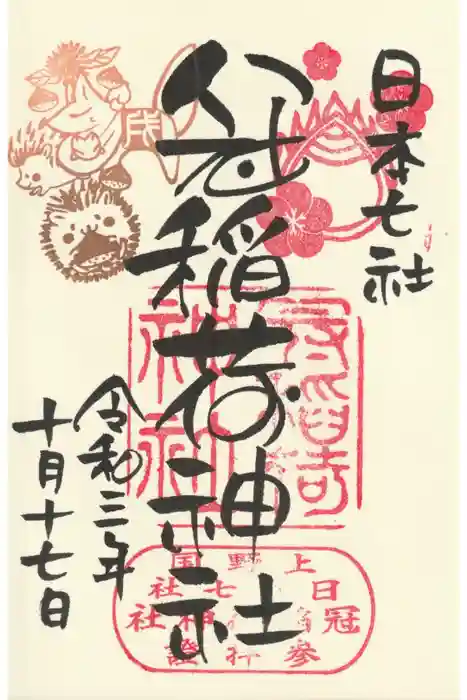 日本七社
冠稲荷神社
令和三年
十月十七日
戌
冠稲荷
神社
上野国
日七社
冠稲荷神社
参行證